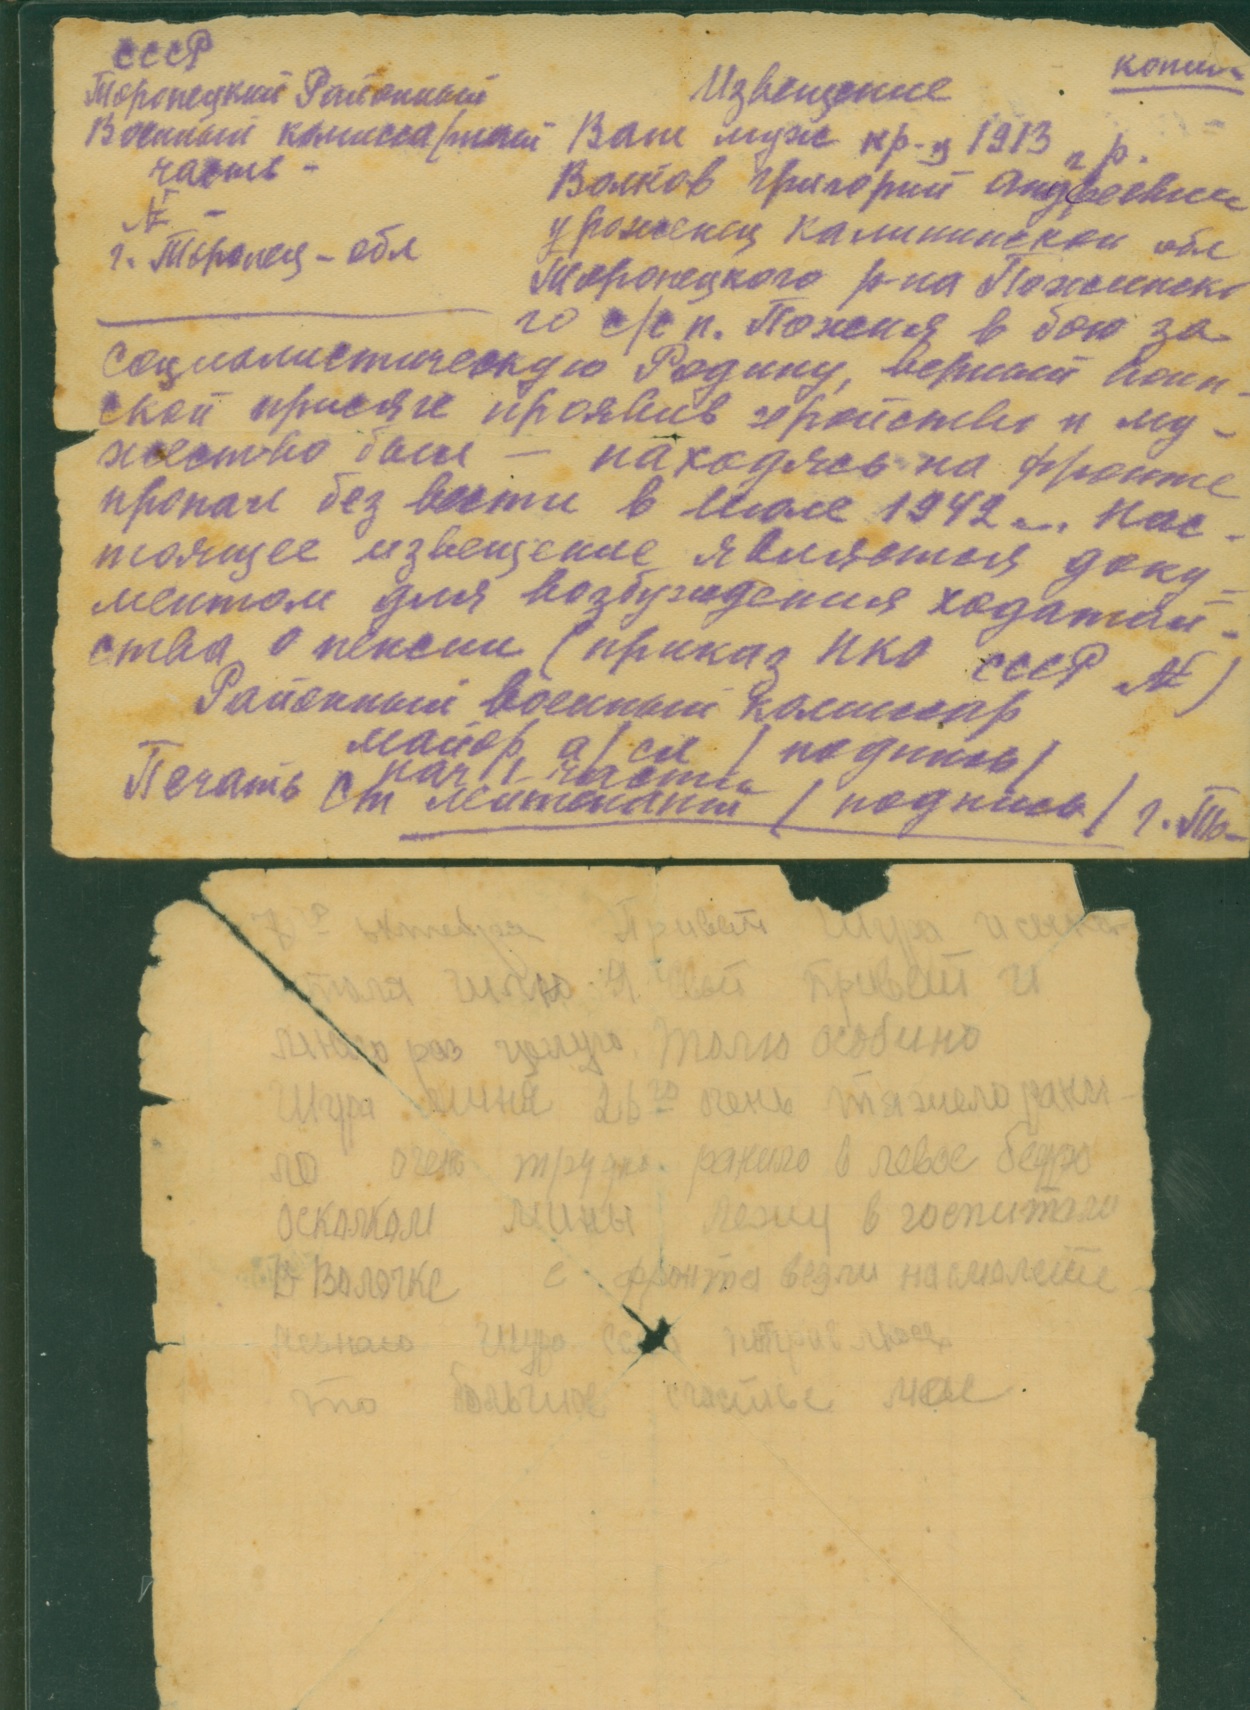 СССР
Торопецкий Районный
Военный комиссариат
часть -
№ -
г. Торопец - обл
копия
Извещение
Ваш муж кр-ц 1913 г р.
Волков Григорий Андреевич
уроженец Калининской обл
Торопецкого р-на Пожинско
го с/с п. Пожня в бою за
социалистическую Родину, верный воин-
ской присяге проявив геройство и му-
жество был — находясь на фронте
пропал без вести в июле 1942 г. Нас-
тоящее извещение является доку-
ментом для возбуждения ходатай-
ства о пенсии (приказ НКО СССР №)
Районный военный комиссар
майор а/сл / подпись/
нач 1 части
Печать Ст лейтенант / подпись/ г. То-
7го октября Привет Шура и
Толя шлю я свой привет и
много раз целую. Толю особино
Шура миня 26го очень тяжело рани-
ло очень трудно. ранило в левое бедро
осколком мины лежу в госпитале
В Волочке с фронта везли на самолете
Шура
это большое счастье мое